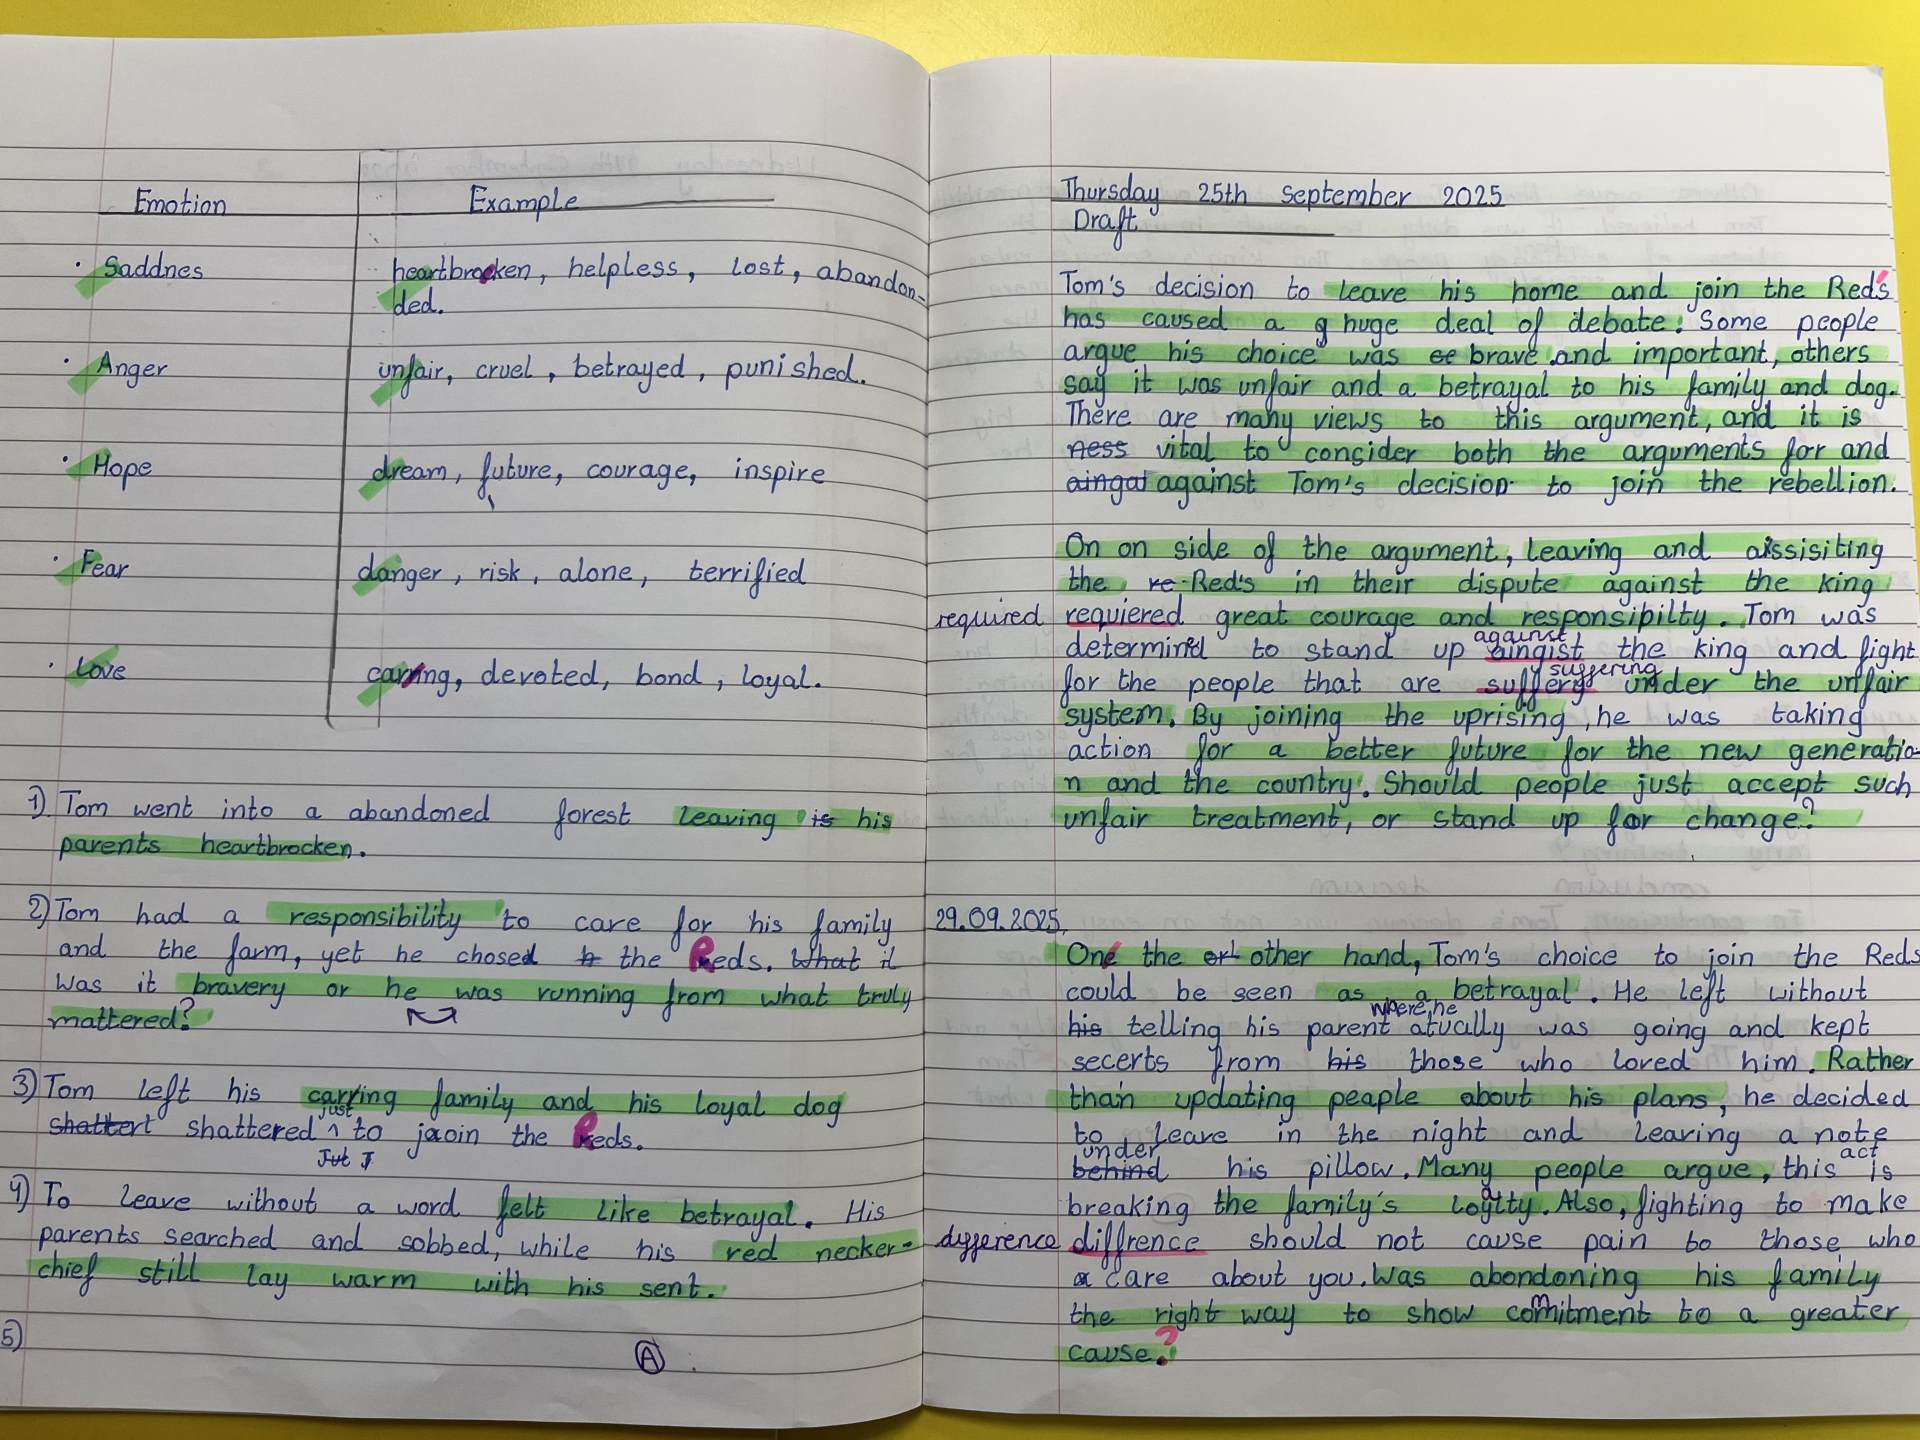 Emotion Example
· Saddnes heartbrocken, helpless, lost, abandon-
ded.
· Anger unfair, cruel, betrayed, punished.
· Hope dream, future, courage, inspire
· Fear danger, risk, alone, terrified
· Love carring, devoted, bond, loyal.
1) Tom went into a abandoned forest leaving is his
parents heartbrocken.
2) Tom had a responsibility to care for his family
and the farm, yet he chosed the Reds. What it
was it bravery or he was running from what truly
mattered?
3) Tom left his carring family and his loyal dog
shattert shattered ^ just to join the Reds.
4) To leave without a word felt like betrayal. His
parents searched and sobbed, while his red necker-
chief still lay warm with his sent.
5)
A
Thursday 25th September 2025
Draft
Tom's decision to leave his home and join the Red's
has caused a g huge deal of debate. Some people
argue his choice was brave and important, others
say it was unfair and a betrayal to his family and dog.
There are many views to this argument, and it is
ness vital to concider both the arguments for and
aingat against Tom's decision to join the rebellion.
On on side of the argument, leaving and aissisiting
the re Red's in their dispute against the king
required requiered great courage and responsibilty. Tom was
against
determind to stand up aingist the king and fight
suffering
for the people that are sufferg under the unfair
system. By joining the uprising, he was taking
action for a better future for the new generatio-
n and the country. Should people just accept such
unfair treatment, or stand up for change?
29.09.2025.
One the ort other hand, Tom's choice to join the Reds
could be seen as a betrayal. He left without
where he
his telling his parent atually was going and kept
secerts from his those who loved him. Rather
than updating peaple about his plans, he decided
to leave in the night and leaving a note
under
behind his pillow. Many people argue, this act is
breaking the family's loyalty. Also, fighting to make
dyfference diffrence should not cause pain to those who
care about you. Was abondoning his family
the right way to show commitment to a greater
cause?